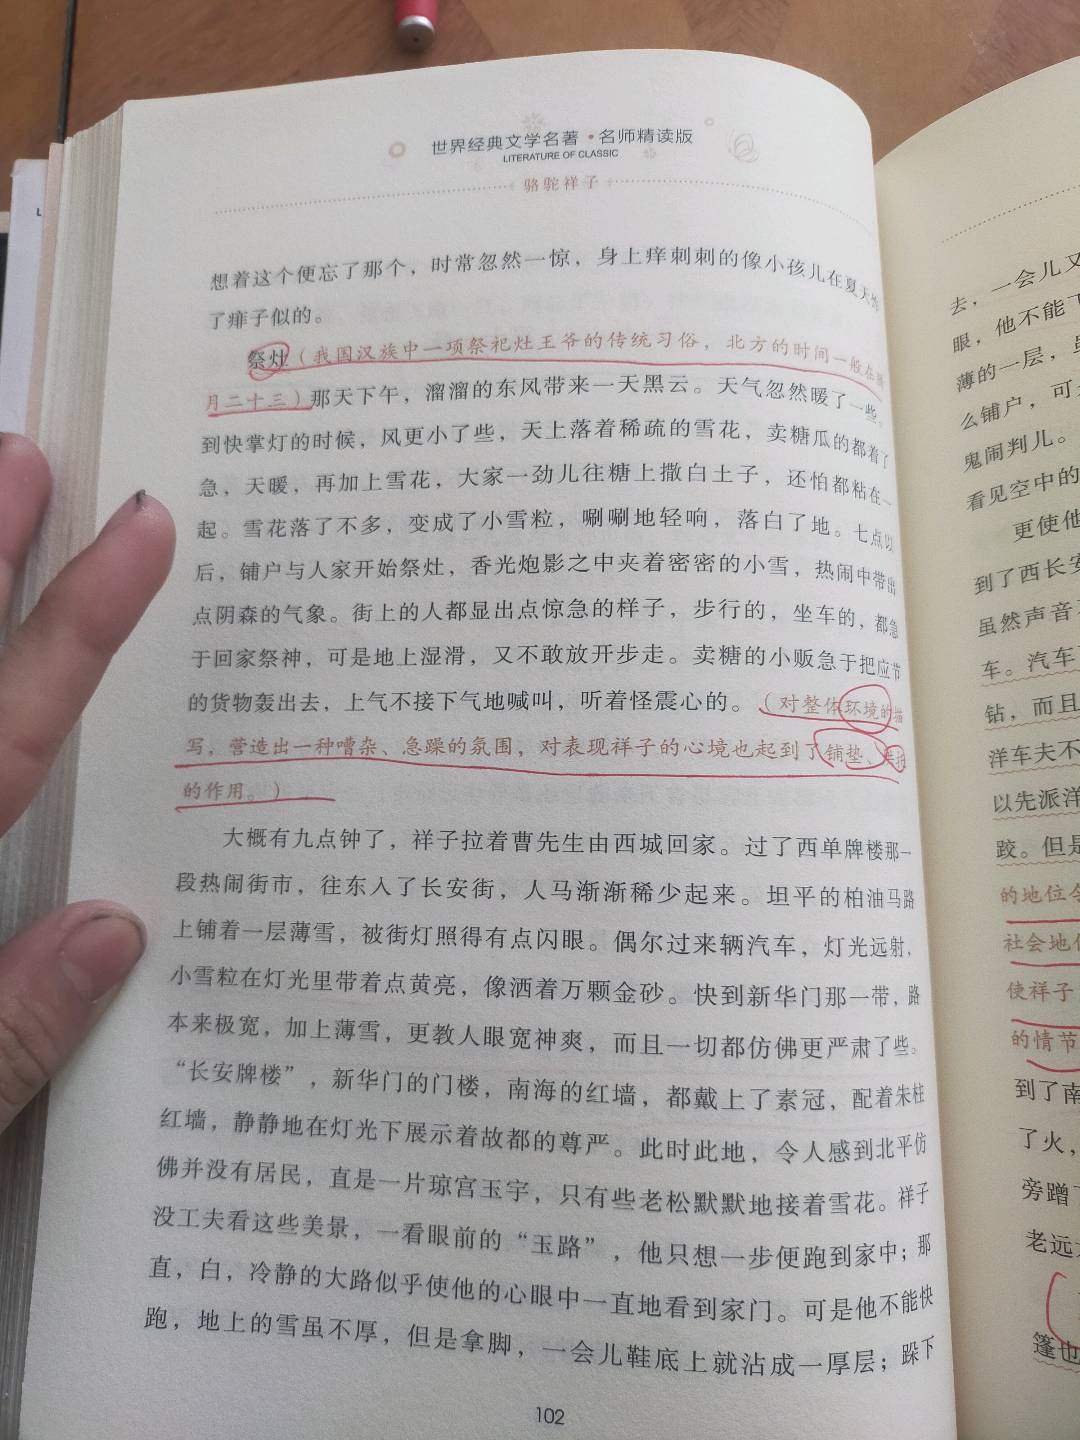 世界经典文学名著·名师精读版
LITERATURE OF CLASSIC
骆驼祥子
想着这个便忘了那个，时常忽然一惊，身上痒刺刺的像小孩儿在夏天炸
了痱子似的。
祭灶（我国汉族中一项祭祀灶王爷的传统习俗，北方的时间一般在腊
月二十三）那天下午，溜溜的东风带来一天黑云。天气忽然暖了一些。
到快掌灯的时候，风更小了些，天上落着稀疏的雪花，卖糖瓜的都着了
急，天暖，再加上雪花，大家一劲儿往糖上撒白土子，还怕都粘在一
起。雪花落了不多，变成了小雪粒，唰唰地轻响，落白了地。七点以
后，铺户与人家开始祭灶，香光炮影之中夹着密密的小雪，热闹中带出
点阴森的气象。街上的人都显出点惊急的样子，步行的，坐车的，都急
于回家祭神，可是地上湿滑，又不敢放开步走。卖糖的小贩急于把应节
的货物轰出去，上气不接下气地喊叫，听着怪震心的。（对整体环境的描
写，营造出一种嘈杂、急躁的氛围，对表现祥子的心境也起到了铺垫、
的作用。）
大概有九点钟了，祥子拉着曹先生由西城回家。过了西单牌楼那一
段热闹街市，往东入了长安街，人马渐渐稀少起来。坦平的柏油马路
上铺着一层薄雪，被街灯照得有点闪眼。偶尔过来辆汽车，灯光远射，
小雪粒在灯光里带着点黄亮，像洒着万颗金砂。快到新华门那一带，路
本来极宽，加上薄雪，更教人眼宽神爽，而且一切都仿佛更严肃了些。
“长安牌楼”，新华门的门楼，南海的红墙，都戴上了素冠，配着朱柱
红墙，静静地在灯光下展示着故都的尊严。此时此地，令人感到北平仿
佛并没有居民，直是一片琼宫玉宇，只有些老松默默地接着雪花。祥子
没工夫看这些美景，一看眼前的“玉路”，他只想一步便跑到家中；那
直，白，冷静的大路似乎使他的心眼中一直地看到家门。可是他不能快
跑，地上的雪虽不厚，但是拿脚，一会儿鞋底上就沾成一厚层；跺下
102
去，一会儿又
眼，他不能
薄的一层，
么铺户，可
鬼闹判儿。
看见空中的
更使他
到了西长安
虽然声音
车。汽车
钻，而且
洋车夫不
以先派洋
跤。但是
的地位
社会地位
使祥子
的情节
到了南
了火，
旁蹭
老远
篷也